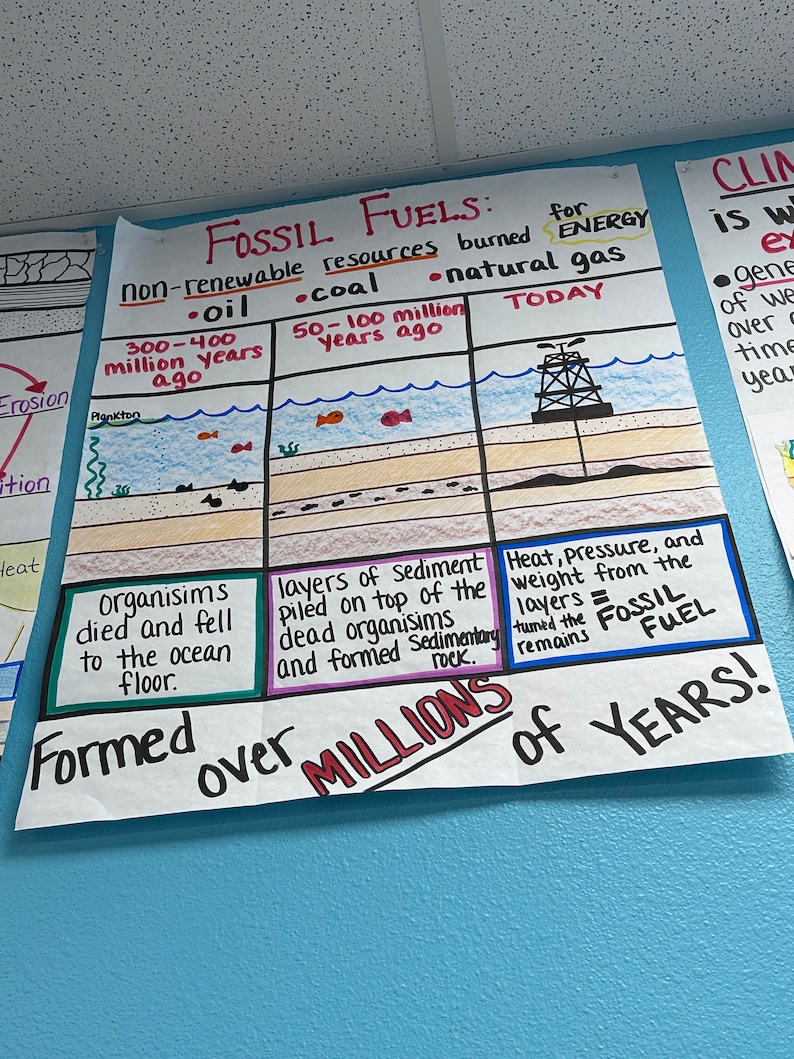 FOSSIL FUELS:
non-renewable resources burned for ENERGY
•oil •coal •natural gas
300-400
million years
ago
Plankton
organisims
died and fell
to the ocean
floor.
50-100 million
years ago
layers of sediment
piled on top of the
dead organisims
and formed Sedimentary
rock.
TODAY
Heat, pressure, and
weight from the
layers =
turned the
remains
FOSSIL
FUEL
Formed over MILLIONS of YEARS!
Erosion
Heat
is
of
over